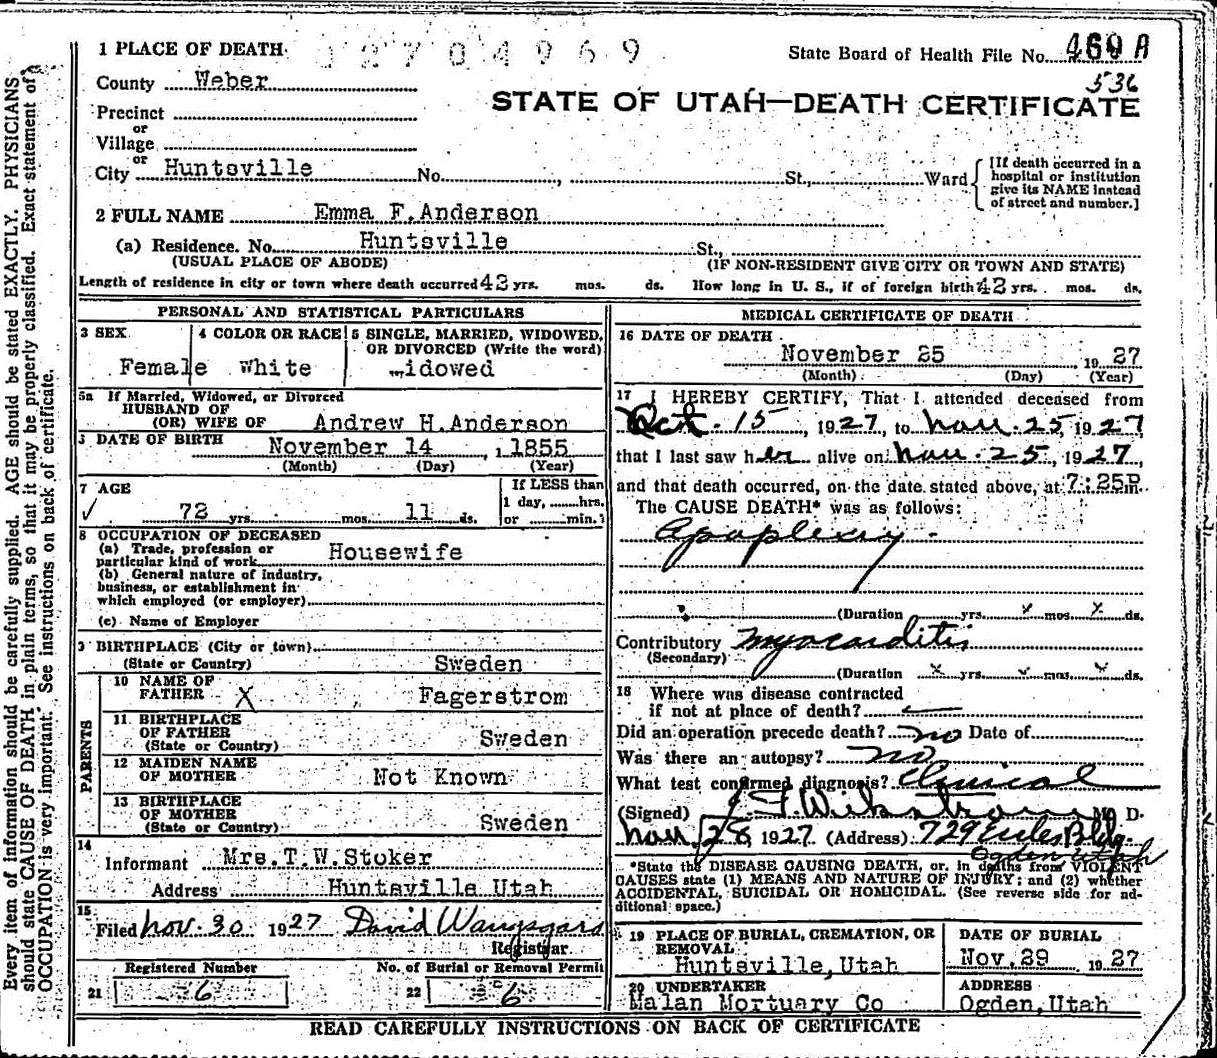 1 PLACE OF DEATH 02704969 State Board of Health File No. 460 A
County Weber 536
STATE OF UTAH—DEATH CERTIFICATE
Precinct
or
Village
or
City Huntsville No. , St., Ward
[If death occurred in a
hospital or institution
give its NAME instead
of street and number.]
2 FULL NAME Emma F. Anderson
(a) Residence. No. Huntsville St.,
(USUAL PLACE OF ABODE) (IF NON-RESIDENT GIVE CITY OR TOWN AND STATE)
Length of residence in city or town where death occurred 42 yrs. mos. ds. How long in U. S., if of foreign birth 42 yrs. mos. ds.
PERSONAL AND STATISTICAL PARTICULARS
3 SEX 4 COLOR OR RACE 5 SINGLE, MARRIED, WIDOWED,
OR DIVORCED (Write the word)
Female White widowed
5a If Married, Widowed, or Divorced
HUSBAND OF
(OR) WIFE OF Andrew H. Anderson
DATE OF BIRTH November 14, 1855
(Month) (Day) (Year)
7 AGE If LESS than
1 day, hrs.
72 yrs. mos. 11 ds. or min.
8 OCCUPATION OF DECEASED
(a) Trade, profession or
particular kind of work Housewife
(b) General nature of industry,
business, or establishment in
which employed (or employer)
(c) Name of Employer
9 BIRTHPLACE (City or town)
(State or Country) Sweden
PARENTS
10 NAME OF
FATHER X Fagerstrom
11 BIRTHPLACE
OF FATHER
(State or Country) Sweden
12 MAIDEN NAME
OF MOTHER Not Known
13 BIRTHPLACE
OF MOTHER
(State or Country) Sweden
14
Informant Mrs. T. W. Stoker
Address Huntsville Utah
15
Filed Nov. 30 1927 David Wangsgard
Registrar
Registered Number No. of Burial or Removal Permit
21 6 22 6
MEDICAL CERTIFICATE OF DEATH
16 DATE OF DEATH
November 25 1927
(Month) (Day) (Year)
17 I HEREBY CERTIFY, That I attended deceased from
Oct. 15, 1927, to Nov. 25, 1927
that I last saw her alive on Nov. 25, 1927,
and that death occurred, on the date stated above, at 7:25P m.
The CAUSE DEATH* was as follows:
Apoplexy
(Duration yrs. x mos. x ds.
Contributory Myocarditis
(Secondary)
(Duration x yrs. x mos. x ds.
18 Where was disease contracted
if not at place of death?
Did an operation precede death? no Date of
Was there an autopsy? no
What test confirmed diagnosis? Clinical
(Signed) M. D.
Nov. 28, 1927 (Address) 729 Eccles Bldg.
Ogden Utah
*State the DISEASE CAUSING DEATH, or, in deaths from VIOLENT
CAUSES state (1) MEANS AND NATURE OF INJURY; and (2) whether
ACCIDENTAL, SUICIDAL OR HOMICIDAL. (See reverse side for ad-
ditional space.)
19 PLACE OF BURIAL, CREMATION, OR DATE OF BURIAL
REMOVAL
Huntsville, Utah Nov. 29 1927
20 UNDERTAKER ADDRESS
Malan Mortuary Co Ogden, Utah
READ CAREFULLY INSTRUCTIONS ON BACK OF CERTIFICATE
Every item of information should be carefully supplied. AGE should be stated EXACTLY. PHYSICIANS
should state CAUSE OF DEATH in plain terms, so that it may be properly classified. Exact statement of
OCCUPATION is very important. See instructions on back of certificate.